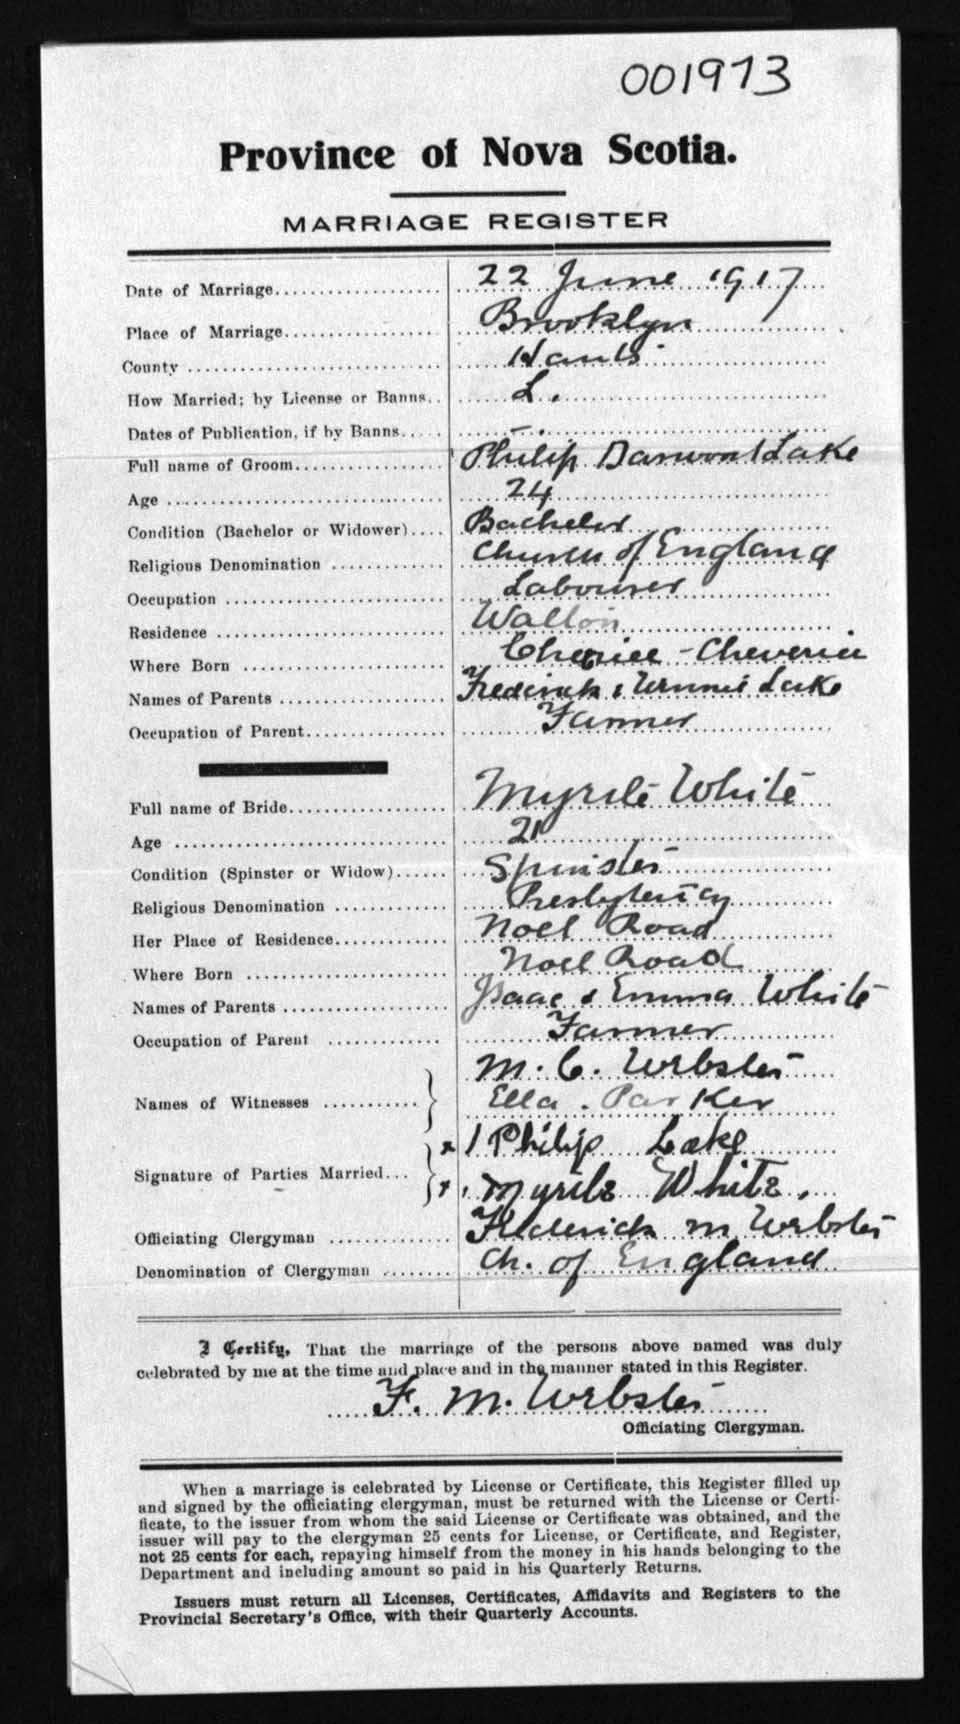 001973
Province of Nova Scotia.
MARRIAGE REGISTER
Date of Marriage 22 June 1917
Place of Marriage Brooklyn
County Hants
How Married; by License or Banns L.
Dates of Publication, if by Banns –.
Full name of Groom Philip Lake
Age 24
Condition (Bachelor or Widower) Bachelor
Religious Denomination Church of England
Occupation Labourer
Residence Walton
Where Born - Cheverie
Names of Parents Frederick & Lake
Occupation of Parent Farmer
Full name of Bride Myrtle White
Age 21
Condition (Spinster or Widow) Spinster
Religious Denomination
Her Place of Residence Noel Road
Where Born Noel Road
Names of Parents Isaac & Emma White
Occupation of Parent Farmer
Names of Witnesses M. C. Webster
Ella Parker
Signature of Parties Married x 1 Philip Lake
x Myrtle White.
Officiating Clergyman Frederick M Webster
Denomination of Clergyman Ch. of England
I Certify, That the marriage of the persons above named was duly
celebrated by me at the time and place and in the manner stated in this Register.
F. M. Webster
Officiating Clergyman.
When a marriage is celebrated by License or Certificate, this Register filled up
and signed by the officiating clergyman, must be returned with the License or Certi-
ficate, to the issuer from whom the said License or Certificate was obtained, and the
issuer will pay to the clergyman 25 cents for License, or Certificate, and Register,
not 25 cents for each, repaying himself from the money in his hands belonging to the
Department and including amount so paid in his Quarterly Returns.
Issuers must return all Licenses, Certificates, Affidavits and Registers to the
Provincial Secretary's Office, with their Quarterly Accounts.